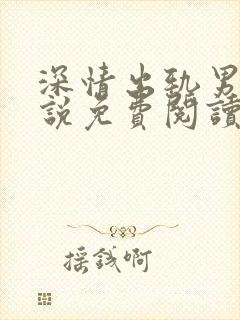 深情出勁男
說免費閱讀
摇錢啊